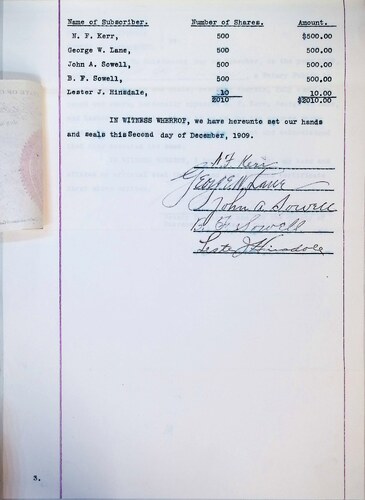 Name of Subscriber. Number of Shares. Amount.
N. F. Kerr, 500 $500.00
George W. Lane, 500 500.00
John A. Sowell, 500 500.00
B. F. Sowell, 500 500.00
Lester J. Hinsdale, 10 10.00
2010 $2010.00
IN WITNESS WHEREOF, we have hereunto set our hands
and seals this Second day of December, 1909.
N F Kerr
George W. Lane
John A Sowell
B F Sowell
Lester J Hinsdale
3.